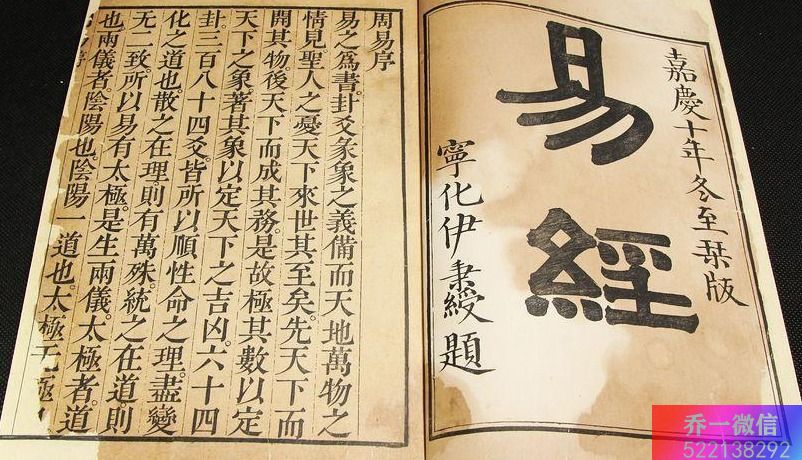 嘉慶十年冬至栞版
易經
寧化伊秉綬題
周易序
易之爲書。卦爻彖象之義備。而天地萬物之
情見。聖人之憂天下來世其至矣。先天下而
開其物。後天下而成其務。是故極其數以定
天下之象。著其象以定天下之吉凶。六十四
卦。三百八十四爻。皆所以順性命之理。盡變
化之道也。散之在理。則有萬殊。統之在道。則
无二致。所以易有太極。是生兩儀。太極者。道
也。兩儀者。陰陽也。陰陽一道也。太極无極
乔一微信
522138292